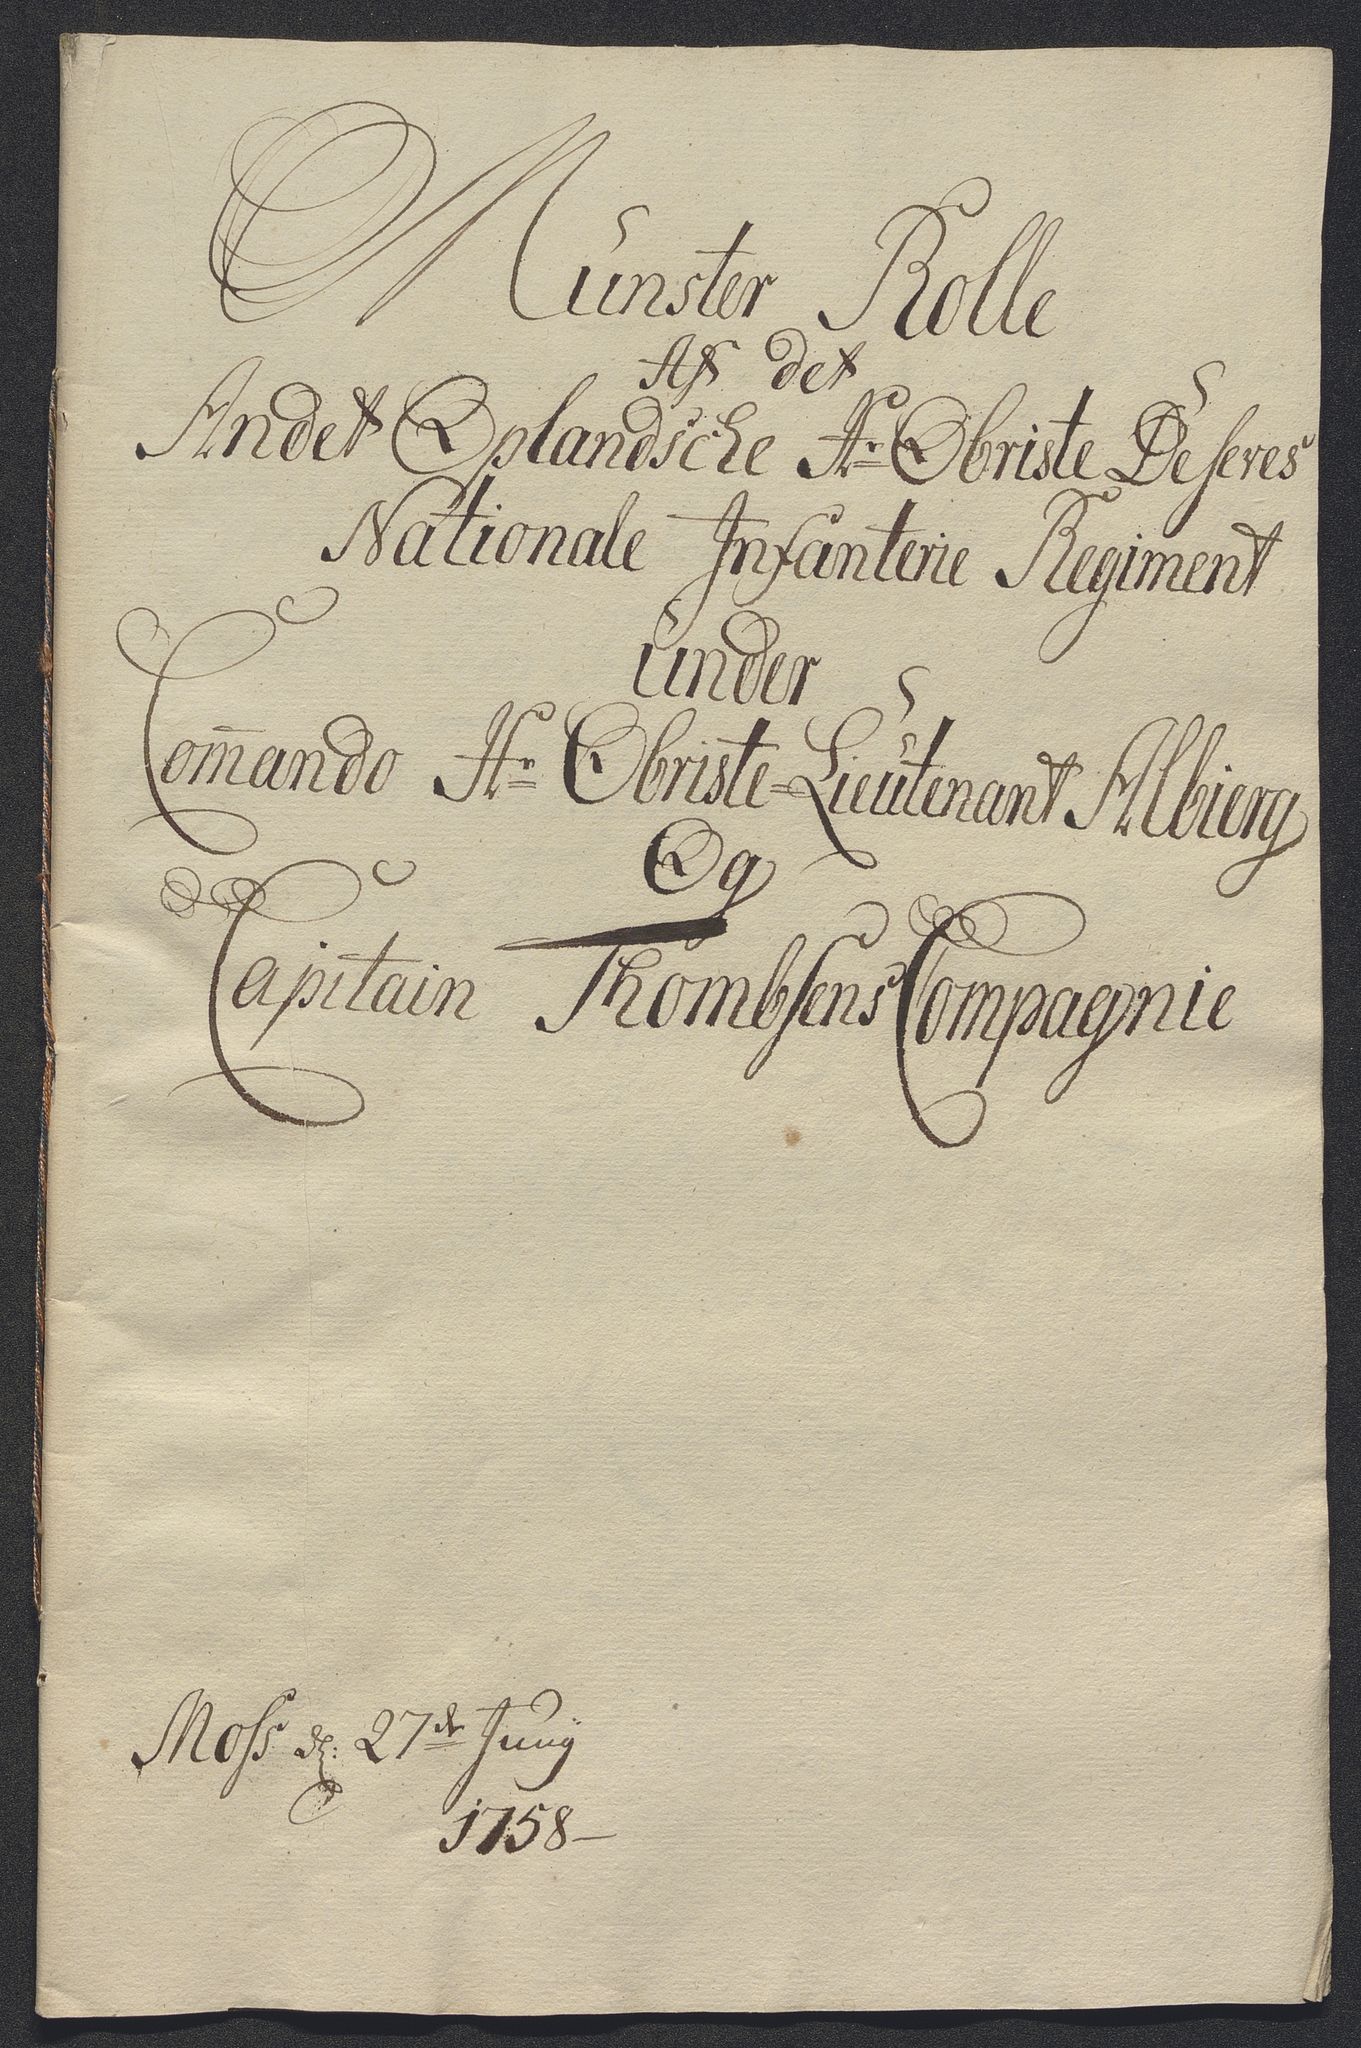 Münster Rolle
Af det
Andet Oplandsche Hr Obriste Deseres
Nationale Infanterie Regiment
ünder
Com̄ando Hr Obriste-Lieütenant Albierg
Og
Capitain Thombsens Compagnie
Moss d: 27de Junÿ
1758-